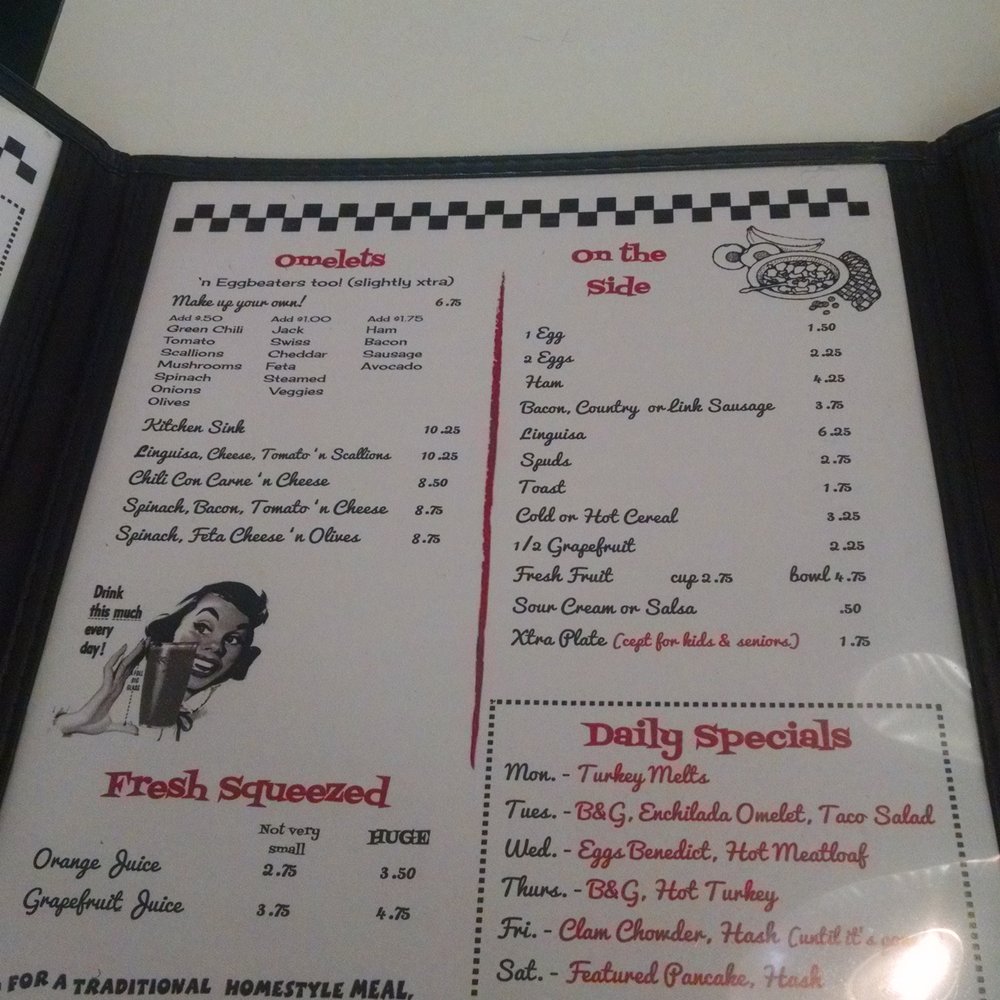 Omelets
'n Eggbeaters too! (slightly xtra)
Make up your own! 6.75
Add $.50 Add $1.00 Add $1.75
Green Chili Jack Ham
Tomato Swiss Bacon
Scallions Cheddar Sausage
Mushrooms Feta Avocado
Spinach Steamed
Onions Veggies
Olives
Kitchen Sink 10.25
Linguisa, Cheese, Tomato 'n Scallions 10.25
Chili Con Carne 'n Cheese 8.50
Spinach, Bacon, Tomato 'n Cheese 8.75
Spinach, Feta Cheese 'n Olives 8.75
Drink
this much
every
day!
A FULL
BIG
GLASS
Fresh Squeezed
Not very
small HUGE
Orange Juice 2.75 3.50
Grapefruit Juice 3.75 4.75
FOR A TRADITIONAL HOMESTYLE MEAL,
On the
Side
1 Egg 1.50
2 Eggs 2.25
Ham 4.25
Bacon, Country or Link Sausage 3.75
Linguisa 6.25
Spuds 2.75
Toast 1.75
Cold or Hot Cereal 3.25
1/2 Grapefruit 2.25
Fresh Fruit cup 2.75 bowl 4.75
Sour Cream or Salsa .50
Xtra Plate (cept for kids & seniors) 1.75
Daily Specials
Mon. - Turkey Melts
Tues. - B&G, Enchilada Omelet, Taco Salad
Wed. - Eggs Benedict, Hot Meatloaf
Thurs. - B&G, Hot Turkey
Fri. - Clam Chowder, Hash (until it's
Sat. - Featured Pancake, Hash